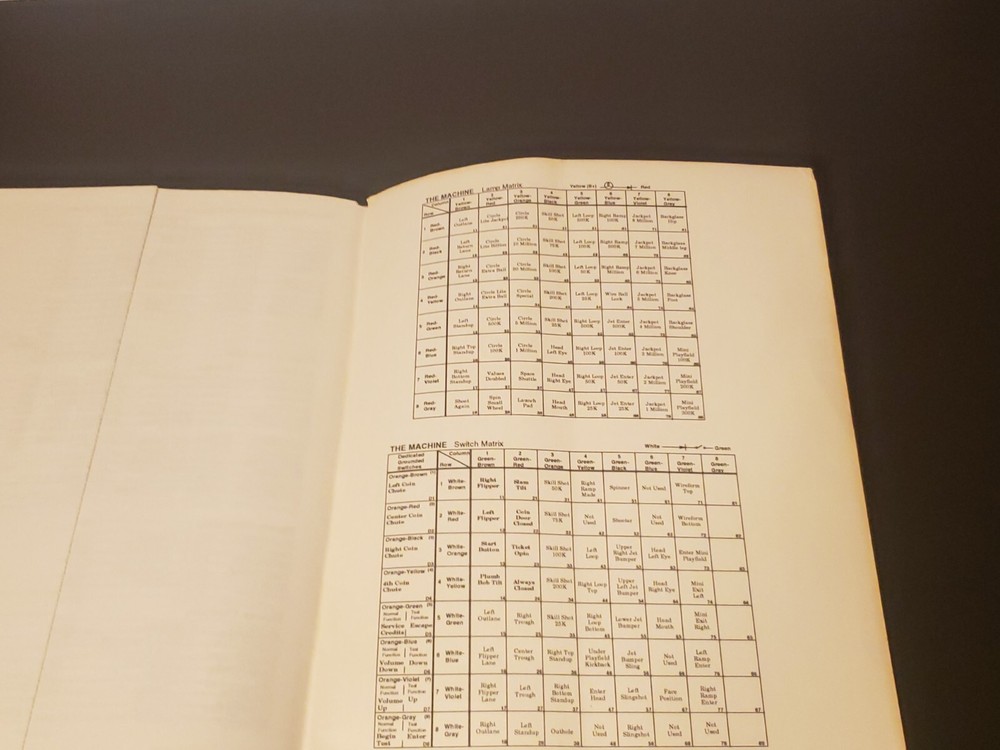 THE MACHINE Lamp Matrix Yellow (B+) Red
Column 1 Yellow-Brown 2 Yellow-Red 3 Yellow-Orange 4 Yellow-Black 5 Yellow-Green 6 Yellow-Blue 7 Yellow-Violet 8 Yellow-Gray
Row
1 Red-Brown Left Outlane Circle Lite Jackpot Circle Skill Shot Left Loop Right Ramp Jackpot Backglass
2 Red-Black Left Return Lane Circle Circle Skill Shot 75K Left Loop Right Ramp Jackpot Backglass
3 Red-Orange Right Return Lane Circle Extra Ball Circle Skill Shot 100K Left Loop Right Ramp Million Jackpot Backglass Knee
4 Red-Yellow Right Outlane Circle Lite Extra Ball Circle Special Skill Shot 200K Left Loop 25K Wire Ball Lock Jackpot Backglass
5 Red-Green Left Standup Circle Circle Skill Shot 25K Right Loop Jet Enter Jackpot 4 Million Backglass Shoulder
6 Red-Blue Right Top Standup Circle 100K Circle 1 Million Head Left Eye Right Loop 100K Jet Enter 100K Jackpot Mini Playfield
7 Red-Violet Right Bottom Standup Values Doubled Space Shuttle Head Right Eye Right Loop 50K Jet Enter 50K Jackpot 2 Million Mini Playfield
8 Red-Gray Shoot Again Spin Small Wheel Launch Pad Head Mouth Right Loop 25K Jet Enter 25K Jackpot 1 Million Mini Playfield
THE MACHINE Switch Matrix White Green
Dedicated Grounded Switches Column Row 1 Green-Brown 2 Green-Red 3 Green-Orange 4 Green-Yellow 5 Green-Black 6 Green-Blue 7 Green-Violet 8 Green-Gray
Orange-Brown (1) Left Coin Chute D1 1 White-Brown Right Flipper 11 Slam Tilt 21 Skill Shot 50K 31 Right Ramp Made 41 Spinner 51 Not Used 61 Wireform Top 71 81
Orange-Red (2) Center Coin Chute D2 2 White-Red Left Flipper 12 Coin Door Closed 22 Skill Shot 75K 32 Not Used 42 Shooter 52 Not Used 62 Wireform Bottom 72 82
Orange-Black (3) Right Coin Chute D3 3 White-Orange Start Button 13 Ticket Optio 23 Skill Shot 100K 33 Left Loop 43 Upper Right Jet Bumper 53 Head Left Eye 63 Enter Mini Playfield 73 83
Orange-Yellow (4) 4th Coin Chute D4 4 White-Yellow Plumb Bob Tilt 14 Always Closed 24 Skill Shot 200K 34 Right Loop Top 44 Upper Left Jet Bumper 54 Head Right Eye 64 Mini Exit Left 74 84
Orange-Green (5) Normal Function Test Function Service Credits Escape D5 5 White-Green Left Outlane 15 Right Trough 25 Skill Shot 25K 35 Right Loop Bottom 45 Lower Jet Bumper 55 Head Mouth 65 Mini Exit Right 75 85
Orange-Blue (6) Normal Function Test Function Volume Down Down D6 6 White-Blue Left Flipper Lane 16 Center Trough 26 Right Top Standup 36 Under Playfield Kickback 46 Jet Bumper Sling 56 Not Used 66 Left Ramp Enter 76 86
Orange-Violet (7) Normal Function Test Function Volume Up Up D7 7 White-Violet Right Flipper Lane 17 Left Trough 27 Right Bottom Standup 37 Enter Head 47 Left Slingshot 57 Face Position 67 Right Ramp Enter 77 87
Orange-Gray (8) Normal Function Test Function Begin Test Enter D8 8 White-Gray Right Outlane 18 Left Standup 28 Outhole 38 Not Used 48 Right Slingshot 58 Not Used 68 Not Used 78 88